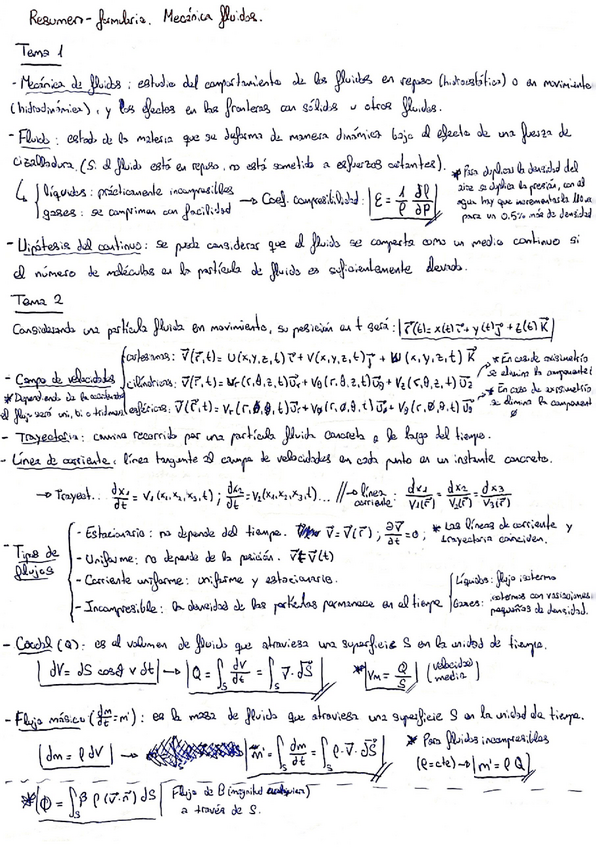 Resumen-formulario. Mecánica fluidos.
Tema 1
- Mecánica de fluidos: estudio del comportamiento de los fluidos en reposo (hidrostática) o en movimiento
(hidrodinámica), y los efectos en las fronteras con sólidos u otros fluidos.
- Fluido: estado de la materia que se deforma de manera dinámica bajo el efecto de una fuerza de
cizalladura. (Si el fluido está en reposo, no está sometido a esfuerzos cortantes).
líquidos: prácticamente incompresibles
gases: se comprimen con facilidad → Coef. compresibilidad: ε = 1/ρ ∂ρ/∂P
* Para duplicar la densidad del
aire se duplica la presión, con el
agua hay que incrementarla
para un 0.5% más de densidad
- Hipótesis del continuo: se puede considerar que el fluido se comporta como un medio continuo si
el número de moléculas en la partícula de fluido es suficientemente elevado.
Tema 2
Considerando una partícula fluida en movimiento, su posición en t será: r⃗(t) = x(t)i⃗ + y(t)j⃗ + z(t)k⃗
- Campo de velocidades
cartesianas: V⃗(r⃗,t) = U(x,y,z,t)i⃗ + V(x,y,z,t)j⃗ + W(x,y,z,t)k⃗
cilíndricas: V⃗(r⃗,t) = Vr(r,θ,z,t)u⃗r + Vθ(r,θ,z,t)u⃗θ + Vz(r,θ,z,t)u⃗z
esféricas: V⃗(r⃗,t) = Vr(r,θ,ϕ,t)u⃗r + Vϕ(r,ϕ,θ,t)u⃗ϕ + Vθ(r,ϕ,θ,t)u⃗θ
* En caso de axisimetría
se elimina la componente
* En caso de axisimetría
se elimina la component
ϕ
* Dependiendo de la
el flujo será uni, bi o tridimen
- Trayectoria: camino recorrido por una partícula fluida concreta a lo largo del tiempo.
- Línea de corriente: línea tangente al campo de velocidades en cada punto en un instante concreto.
→ Trayect... dx1/dt = V1(x1,x2,x3,t); dx2/dt = V2(x1,x2,x3,t)... // → línea corriente: dx1/V1(r⃗) = dx2/V2(r⃗) = dx3/V3(r⃗)
- Tipos de
flujos
- Estacionario: no depende del tiempo. V⃗ = V⃗(r⃗); ∂V⃗/∂t = 0; * Las líneas de corriente y
trayectoria coinciden.
- Uniforme: no depende de la posición. V⃗ = V⃗(t)
- Corriente uniforme: uniforme y estacionario.
- Incompresible: la densidad de las partículas permanece en el tiempo
Líquidos: flujo isotermo
Gases: isotermos con variaciones
pequeñas de densidad.
- Caudal (Q): es el volumen de fluido que atraviesa una superficie S en la unidad de tiempo.
dV = dS cosθ v dt → Q = ∫S dV/dt = ∫S v⃗·dS⃗ * Vm = Q/S (velocidad media)
- Flujo másico (dm/dt = ṁ): es la masa de fluido que atraviesa una superficie S en la unidad de tiempo.
dm = ρ dV → ṁ = ∫S dm/dt = ∫S ρ·v⃗·dS⃗
* Para fluidos incompresibles
(ρ=cte) → ṁ = ρ Q
* Φ = ∫S β ρ (v⃗·n⃗) dS Flujo de B (magnitud cualquiera)
a través de S.